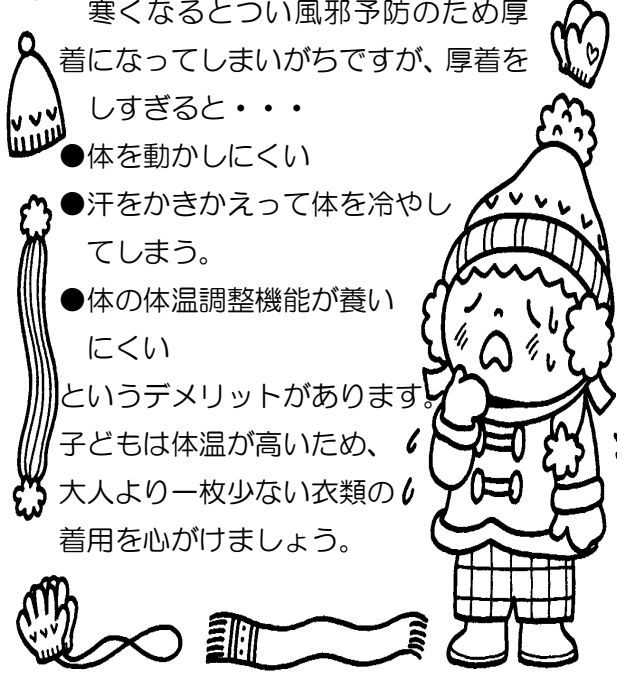 寒くなるとつい風邪予防のため厚
着になってしまいがちですが、厚着を
しすぎると・・・
●体を動かしにくい
●汗をかきかえって体を冷やし
てしまう。
●体の体温調整機能が養い
にくい
というデメリットがあります。
子どもは体温が高いため、
大人より一枚少ない衣類の
着用を心がけましょう。